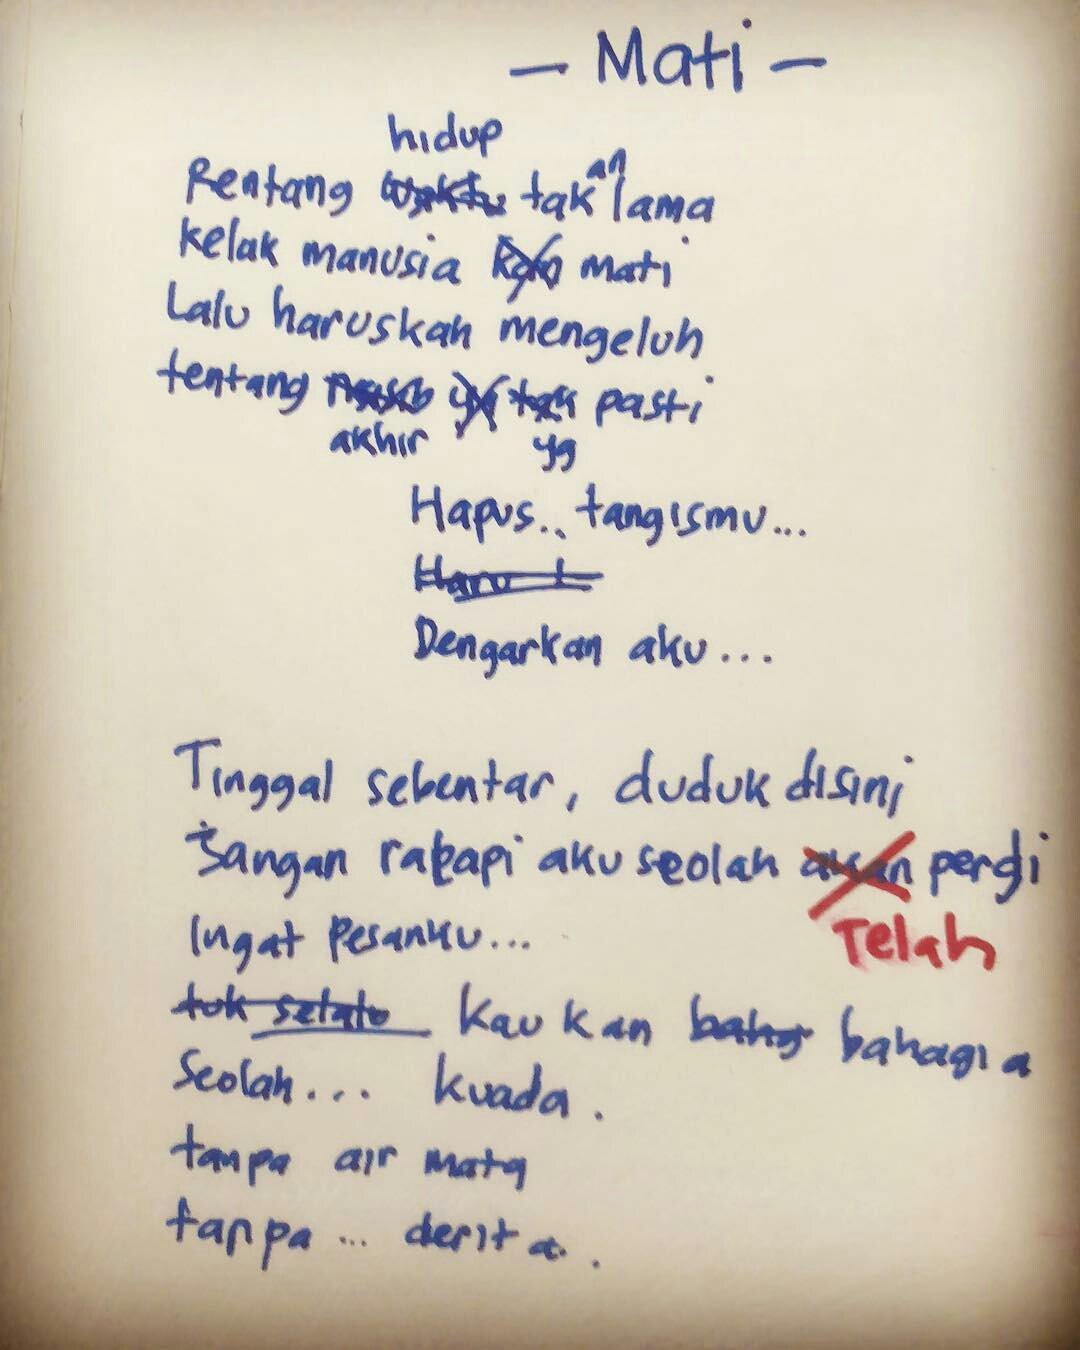 - Mati -
hidup
Rentang waktu tak an lama
kelak manusia kan mati
Lalu haruskah mengeluh
tentang yg tak pasti
akhir yg
Hapus.. tangismu...
Haru t
Dengarkan aku...
Tinggal sebentar, duduk disini
Jangan ratapi aku seolah akan pergi
Telah
Ingat Pesanku...
tuk selalu kau kan bahag bahagia
Seolah... kuada.
tanpa air mata
tanpa... derita.